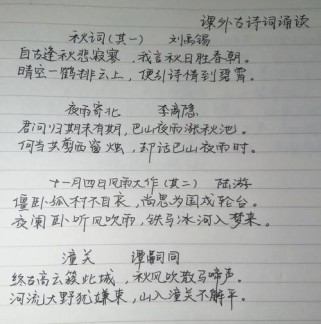 课外古诗词诵读
秋词(其一) 刘禹锡
自古逢秋悲寂寥，我言秋日胜春朝。
晴空一鹤排云上，便引诗情到碧霄。
夜雨寄北 李商隐
君问归期未有期，巴山夜雨涨秋池。
何当共剪西窗烛，却话巴山夜雨时。
十一月四日风雨大作(其二) 陆游
僵卧孤村不自哀，尚思为国戍轮台。
夜阑卧听风吹雨，铁马冰河入梦来。
潼关 谭嗣同
终古高云簇此城，秋风吹散马啼声。
河流大野犹嫌束，山入潼关不解平。